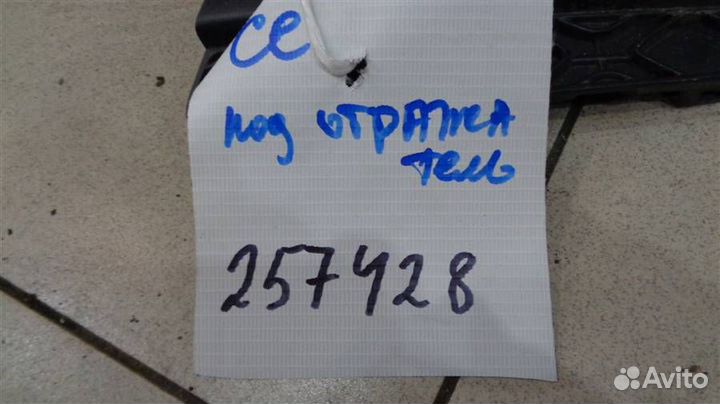 CC
под отража
тель
257428
Avito